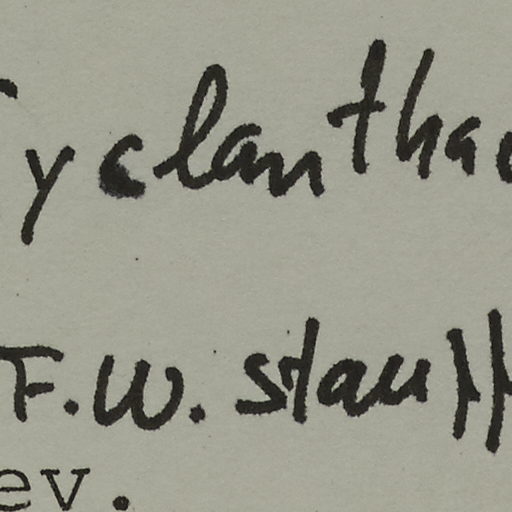 Cyclanthac
F.W. Stauff
ev.